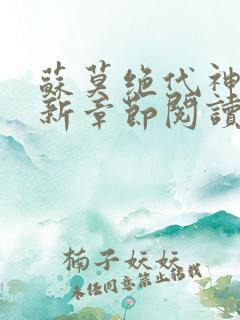 蘇莫絕代神
新章節閱讀
楠子妖妖
未經同意禁止轉載